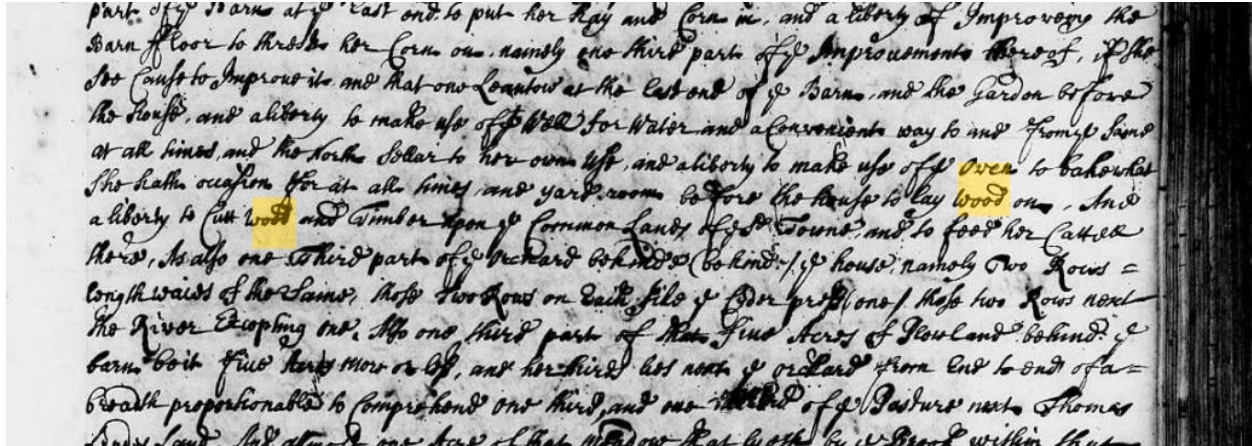 part of ye Barn at ye East end, to put her Hay and Corn in, and a liberty of Improveing the
Barn floor to thresh her Corn on, namely one third part of ye Improvements thereof, if she
see Cause to Improve it, and that one Leantow at the East end of ye Barn, and the Garden before
the house, and a liberty to make use of ye Well for Water and a Convenient way to and from ye Same
at all times, and the North Sellar to her own Use, and a liberty to make use of ye Oven to bake what
She hath occasion for at all times, and yard room before the house to lay wood on, And
a liberty to Cutt wood and Timber upon ye Common Lands of ye Towne, and to feed her Cattell
there, As also one Third part of ye Orchard behinde (behind:/ ye house, namely Two Rows =
length waies of the Same, those two Rows on Each side ye Cider press (one/ those two Rows next
the River Excepting one, Also one third part of that five Acres of Plowland behind ye
barn be it five Acres more or less, and her third lies next ye orchard from End to end of a =
breadth proportionable to Comprehend one third, and one third of ye Pasture next Thomas
Land, And almost one Acre of that meadow that lyeth by ye Brook within that